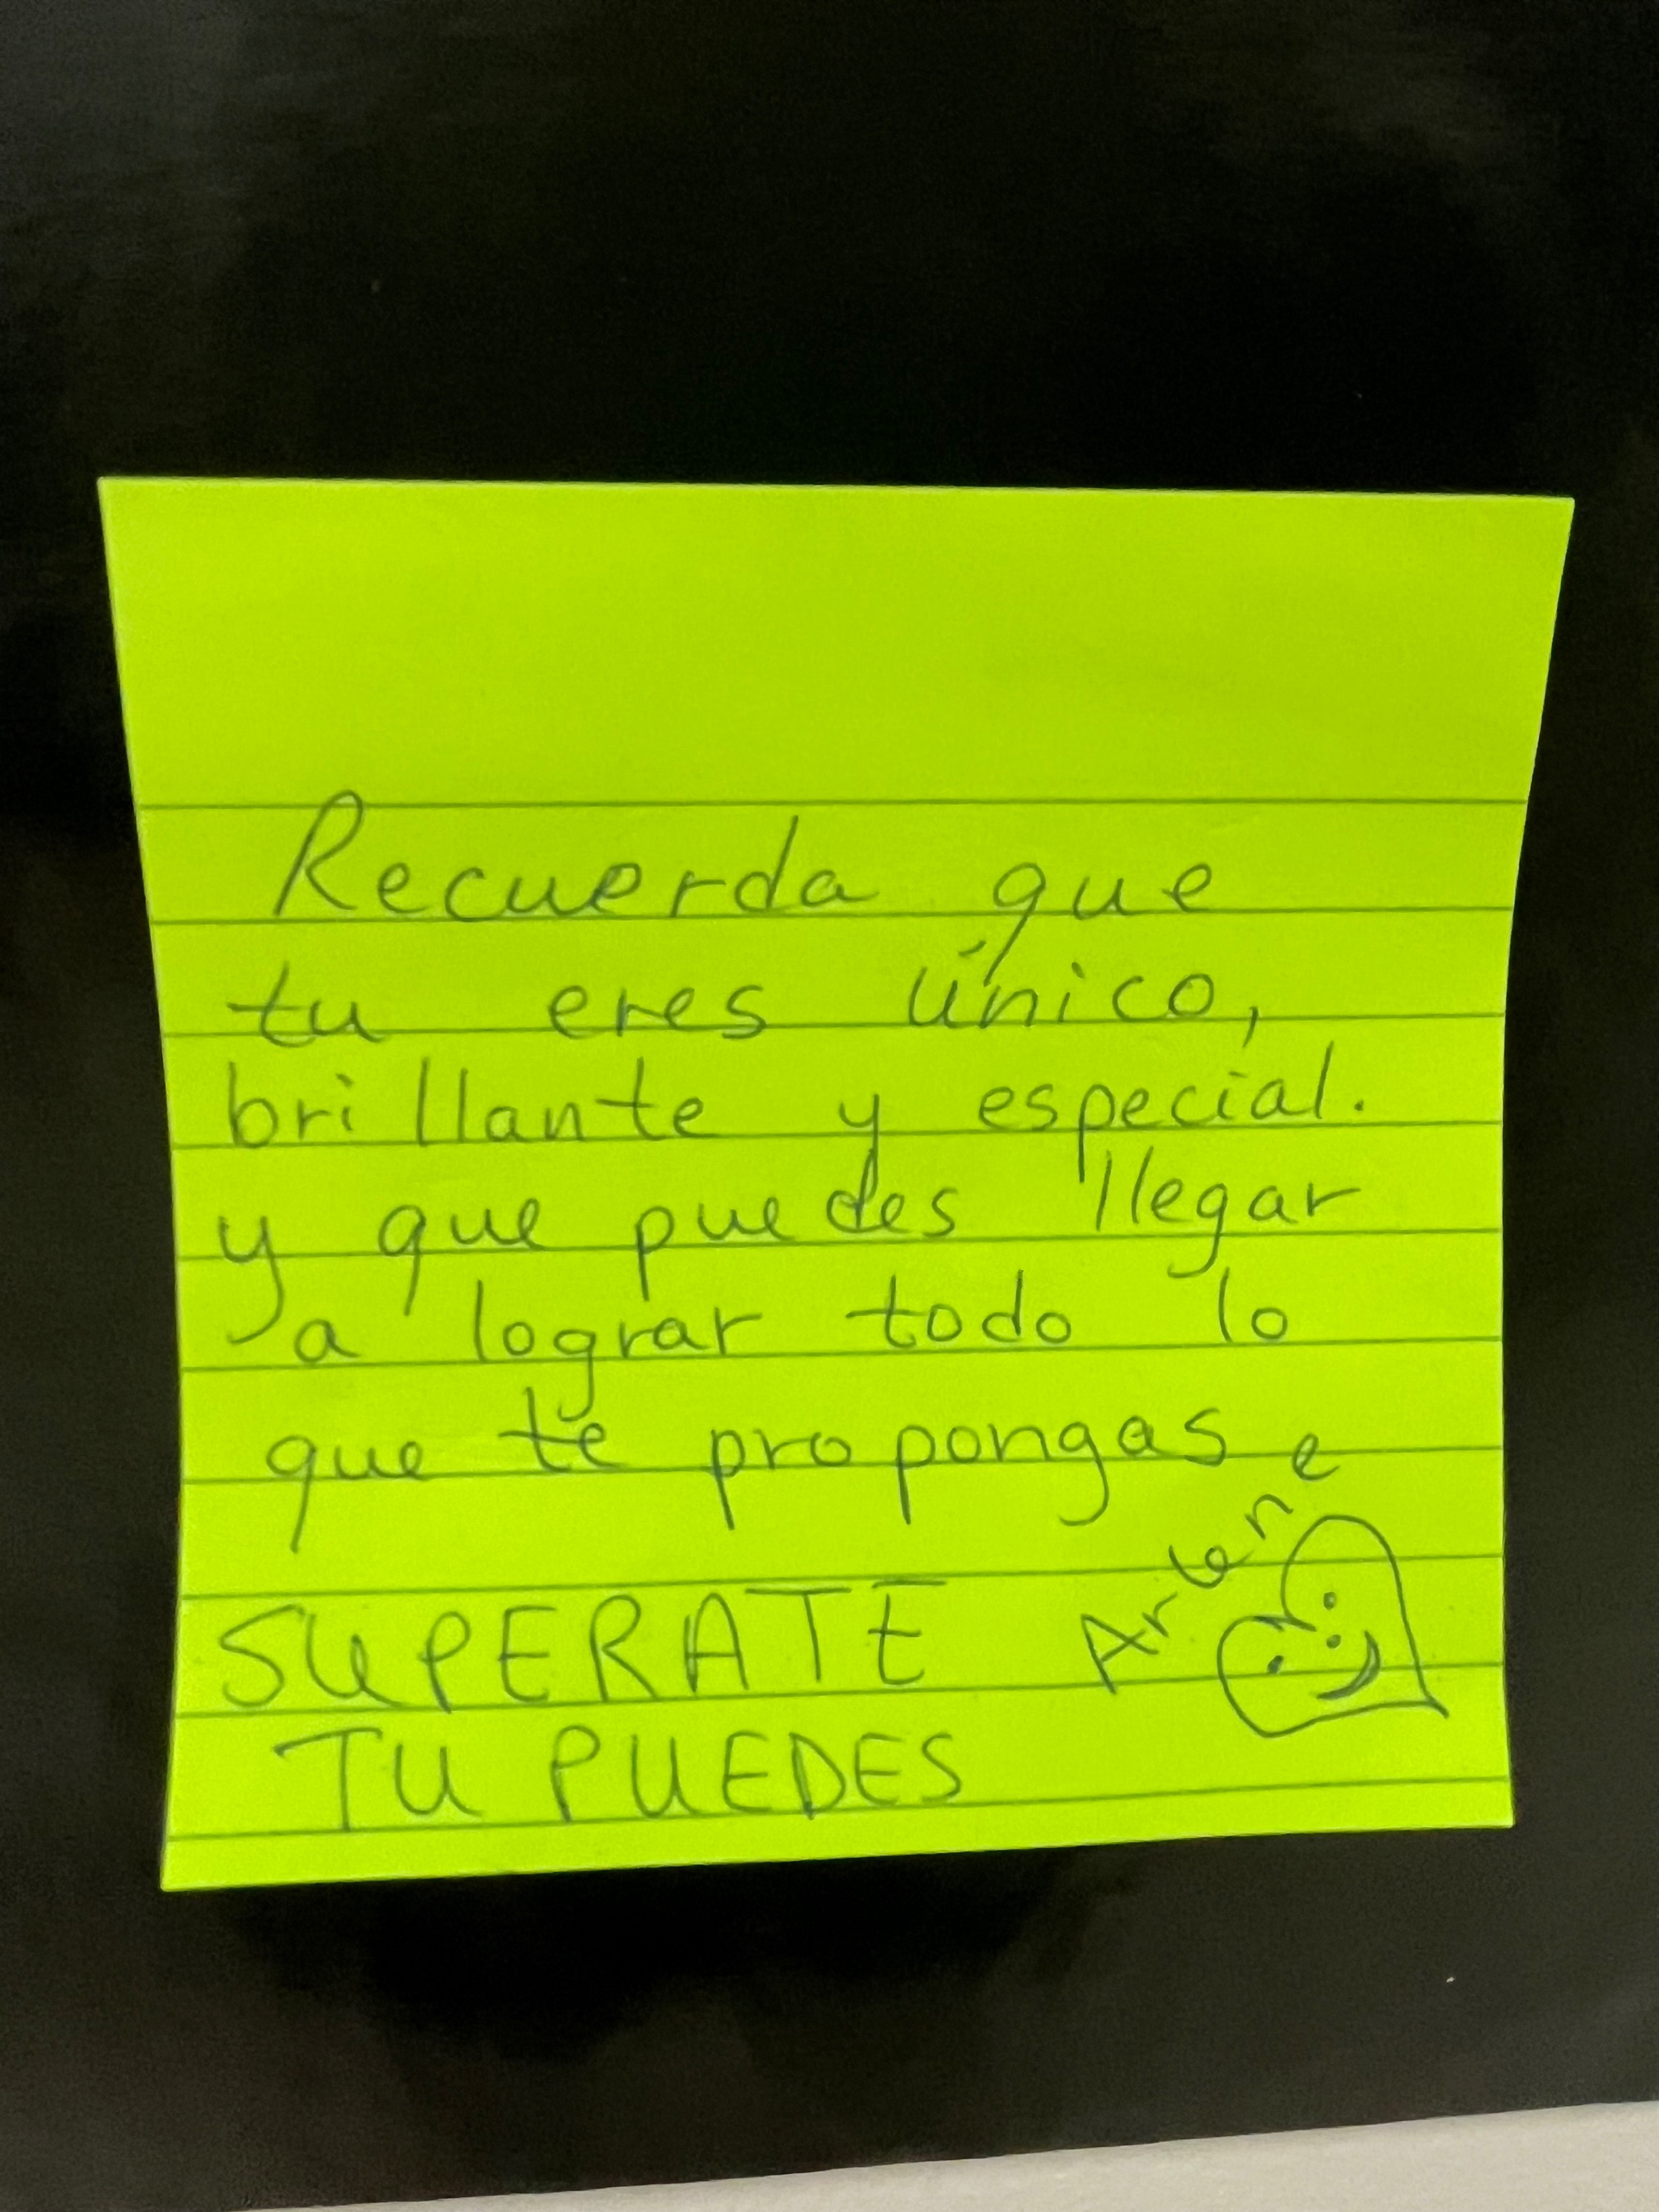 Recuerda que
tu eres único,
brillante y especial.
y que puedes llegar
a lograr todo lo
que te propongas
SUPERATE
TU PUEDES